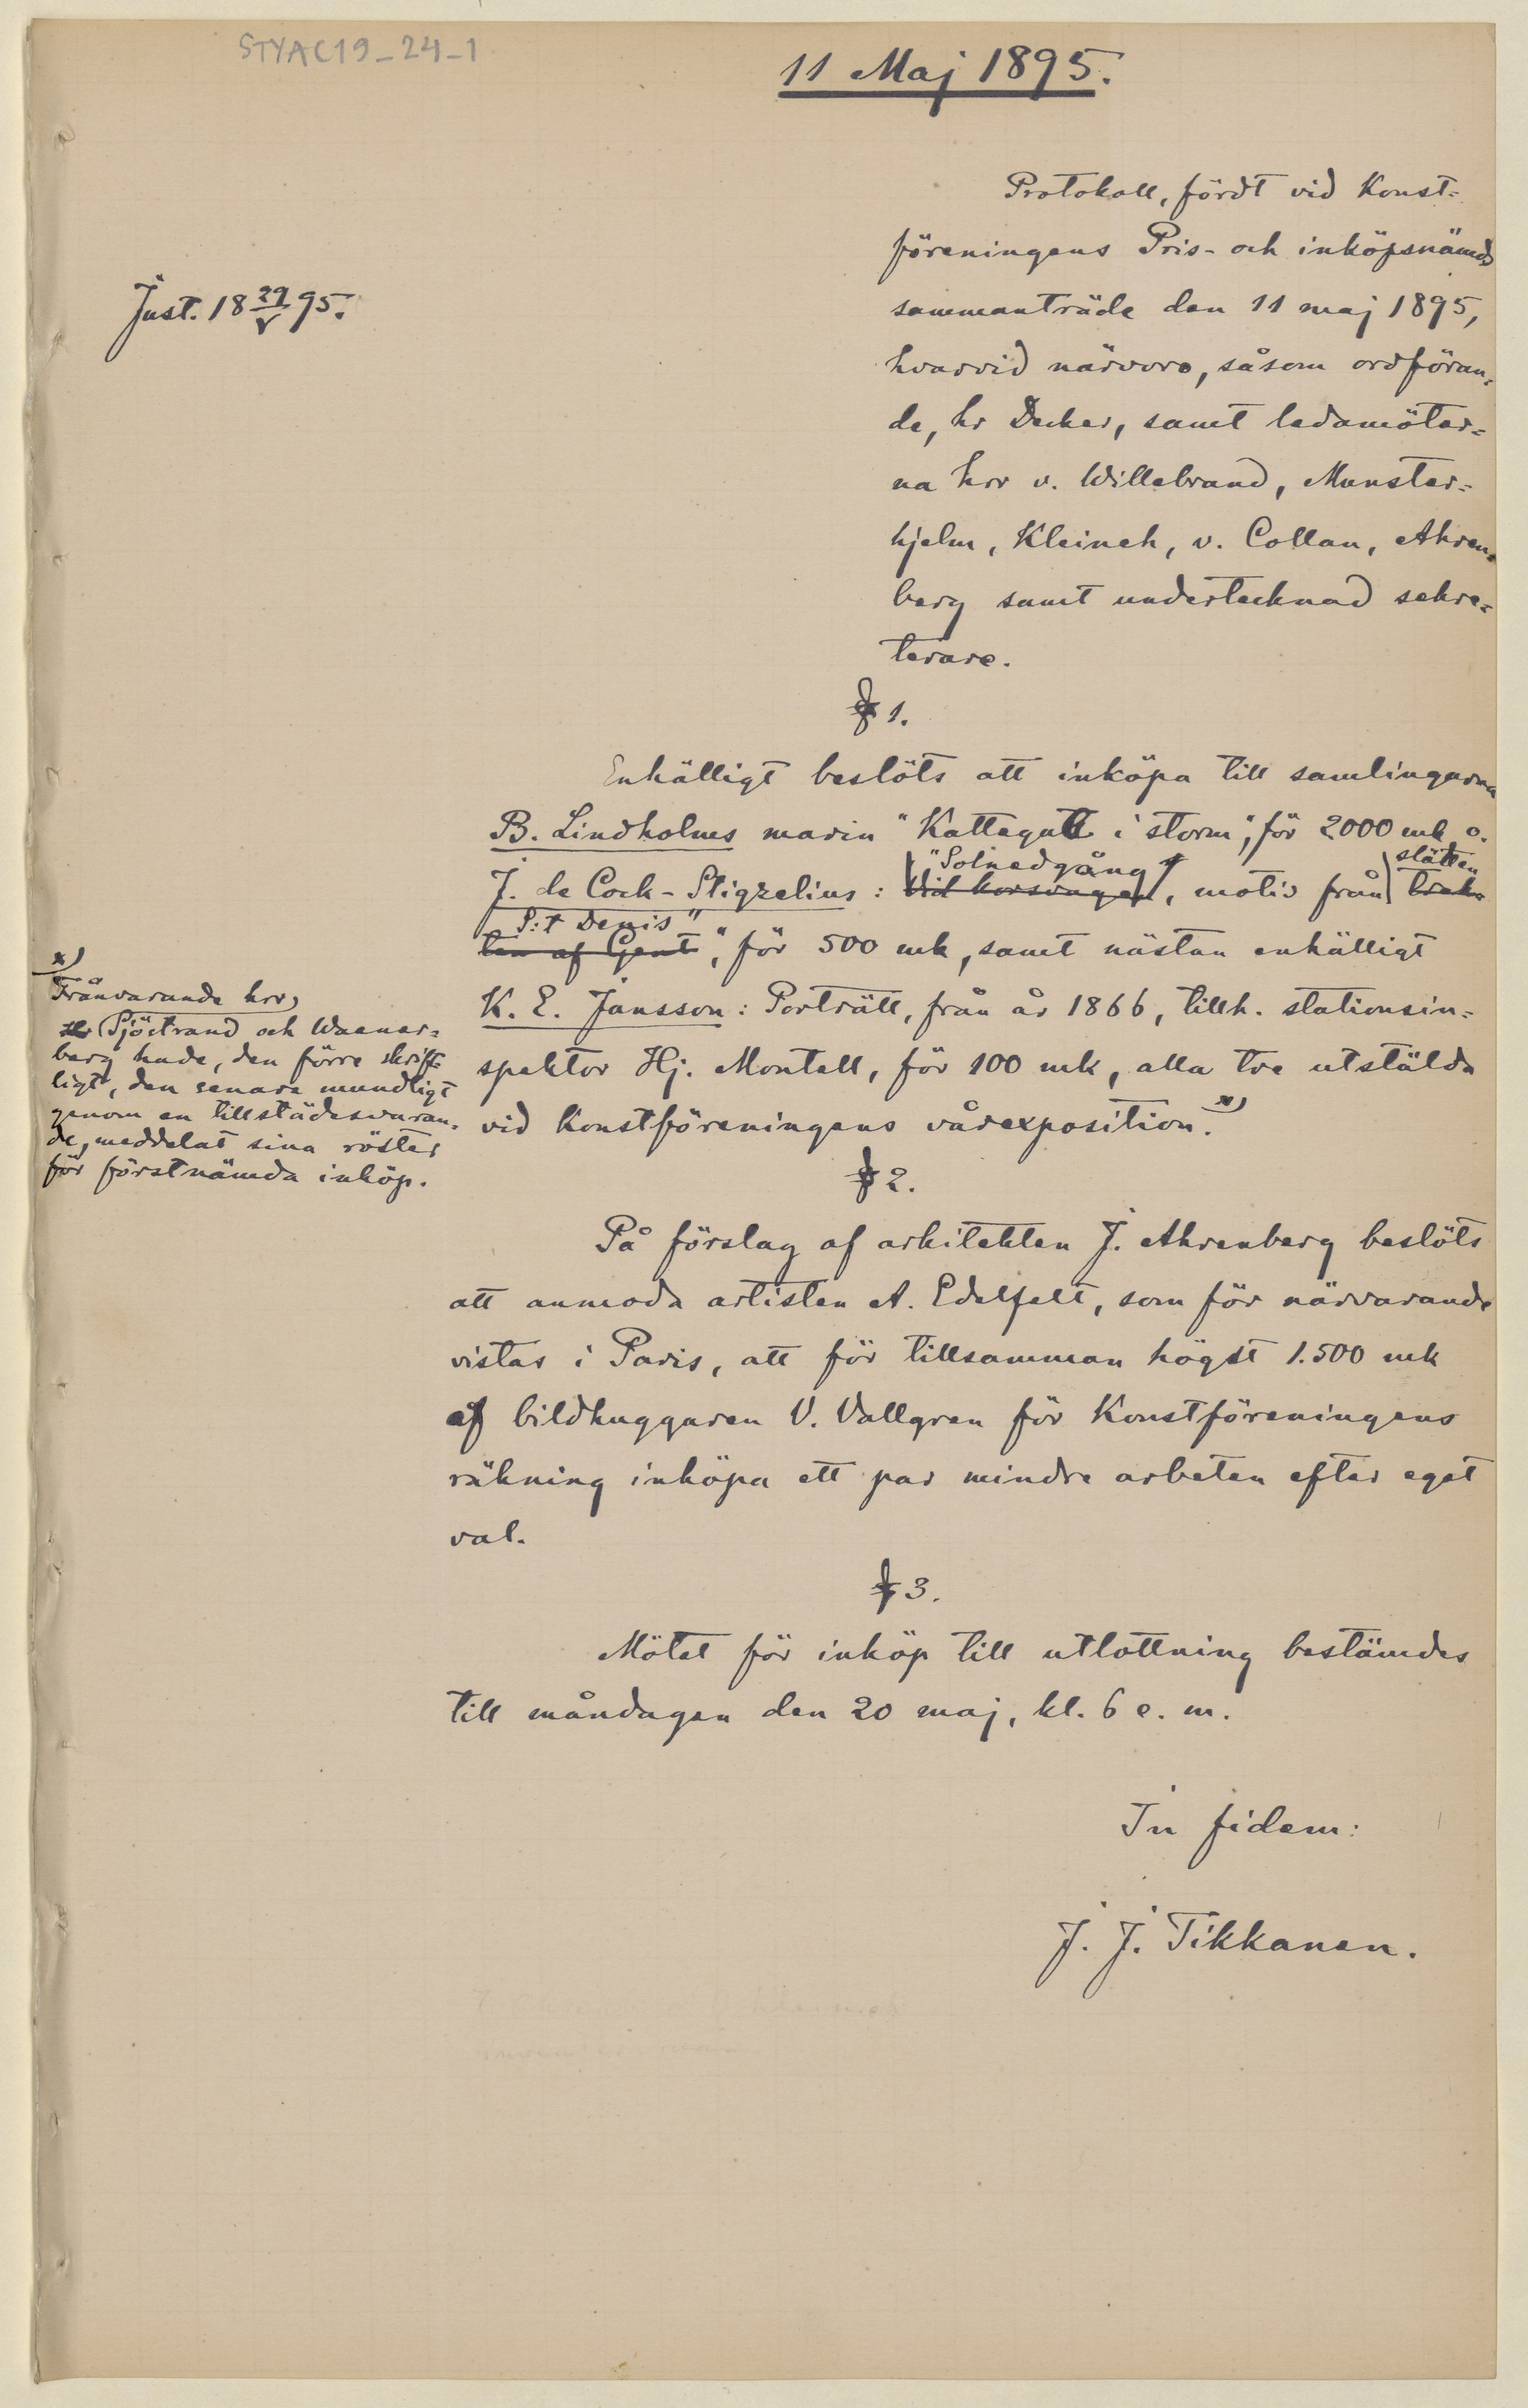 STYAC19_24_1
11 Maj 1895.
Protokoll, fördt vid Konst=
föreningens Pris- och inköpsnämds
sammanträde den 11 maj 1895,
hvarvid närvoro, såsom ordföran=
de, hr Decker, samt ledamöter=
na hrr v. Willebrand, Munster=
hjelm, Kleineh, v. Collan, Ahren=
berg samt undertecknad sekre=
terare.
Just. 18 29/V 95.
§ 1.
Enhälligt beslöts att inköpa till samlingarna
B. Lindholms marin "Kattegatt i storm", för 2000 mk o.
"Solnedgång slätten
J. de Cock-Stigzelius: Vid korsvägen, motiv från trak
S:t Denis"
ten af Gent", för 500 mk, samt nästan enhälligt
K. E. Jansson: Porträtt, från år 1866, tillh. stationsin=
spektor Hj. Montell, för 100 mk, alla tre utstälda
vid Konstföreningens vårexposition. x)
x)
Frånvarande hrr
Sjöstrand och Waener=
berg hade, den förre skrift=
ligt, den senare mundligt
genom en tillstädesvaran=
de, meddelat sina röster
för förstnämda inköp.
§ 2.
På förslag af arkitekten J. Ahrenberg beslöts
att anmoda artisten A. Edelfelt, som för närvarande
vistas i Paris, att för tillsamman högst 1.500 mk
af bildhuggaren V. Vallgren för Konstföreningens
räkning inköpa ett par mindre arbeten efter eget
val.
§ 3.
Mötet för inköp till utlottning bestämdes
till måndagen den 20 maj, kl. 6 e. m.
In fidem:
J. J. Tikkanen.